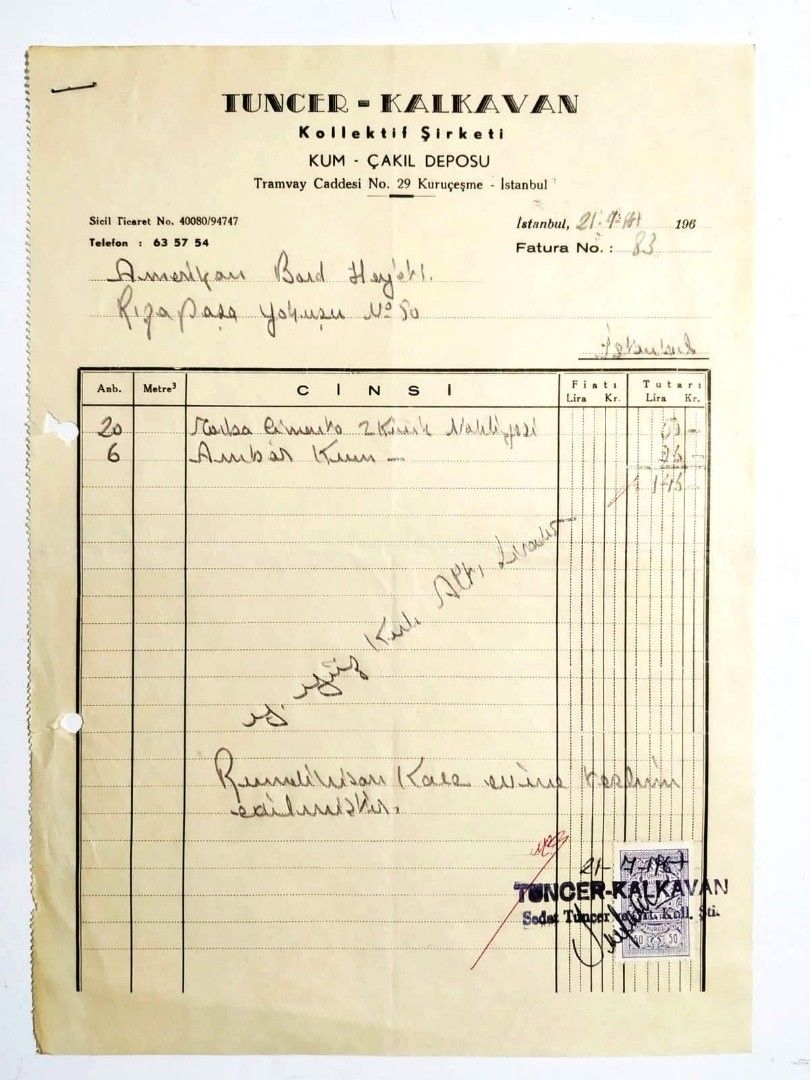 TUNCER - KALKAVAN
Kollektif Şirketi
KUM - ÇAKIL DEPOSU
Tramvay Caddesi No. 29 Kuruçeşme - İstanbul
Sicil Ticaret No. 40080/94747
Telefon : 63 57 54
İstanbul, 21.7. 196
Fatura No. : 83
Amerikan Bord Hey'eti.
Rızapaşa yokuşu No 50
İstanbul
Anb. Metre³ CİNSİ Fiatı Lira Kr. Tutarı Lira Kr.
20 Torba Çimento Nakliyesi
6 Ambar Kum —
146 -
yüz Kırk Altı Liradır
Rumelihisarı Kale evine teslim
edilmiştir.
21-7-196
TUNCER-KALKAVAN
Sedat Tuncer Koll. Şti.
50 50